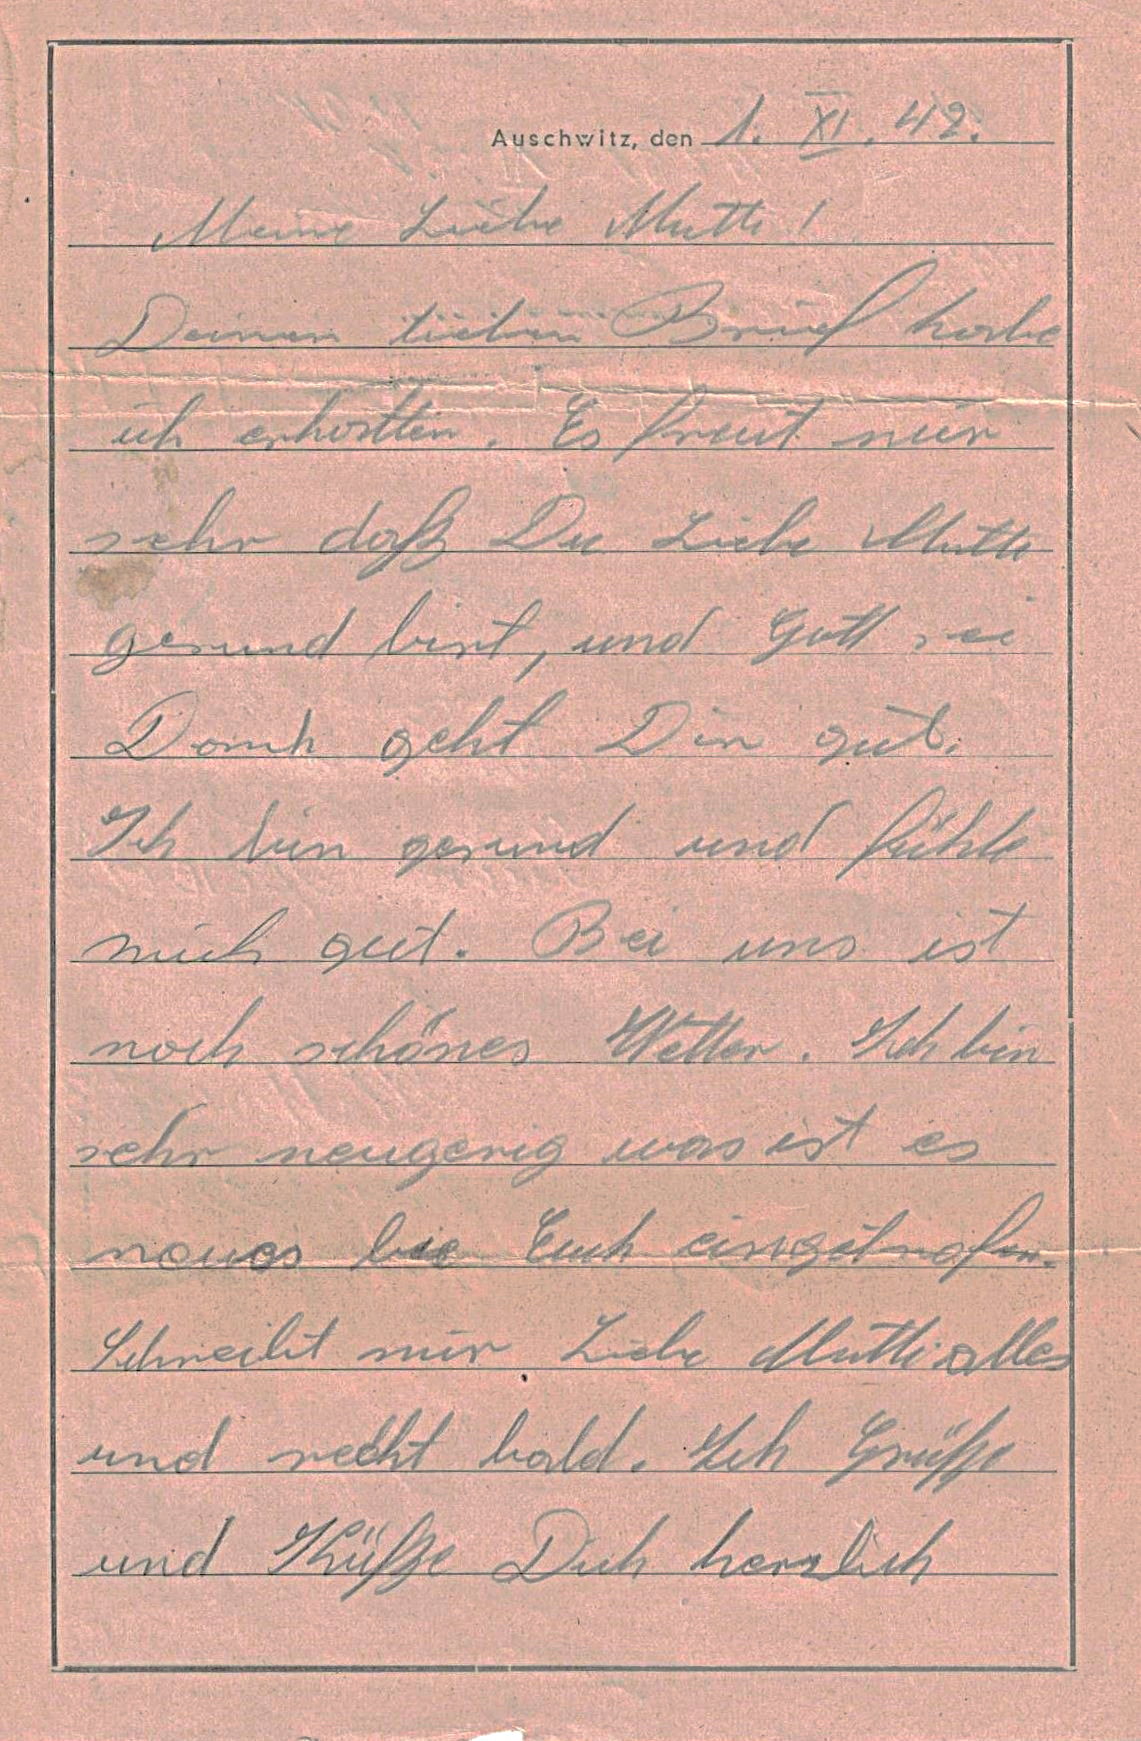 Auschwitz, den 1. XI. 42.
Meine Liebe Mutti!
Deinen lieben Brief habe
ich erhatten. Es freut mir
sehr daß Du Liebe Mutti
gesund bist, und Gott sei
Dank geht Dir gut.
Ich bin gesund und fühle
mich gut. Bei uns ist
noch schönes Wetter. Ich bin
sehr neugerig was ist es
neues bie Euch eingetrafen.
Schreibt mir Liebe Mutti alles
und recht bald. Ich Grüße
und Küße Dich herzlich